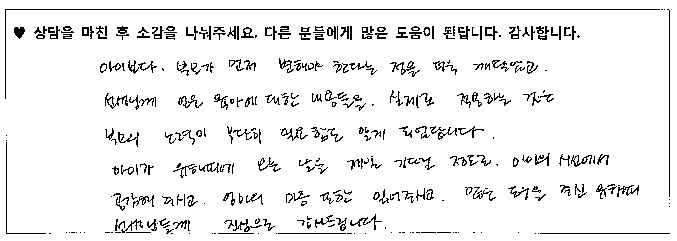 ♥ 상담을 마친 후 소감을 나눠주세요. 다른 분들에게 많은 도움이 된답니다. 감사합니다.
아이보다. 부모가 먼저 변해야 한다는 점을 깨달았고.
선생님께 얻은 육아에 대한 내용들을. 실제로 적용하는 것은
부모의 노력이 부단히 필요함도 알게 되었답니다.
아이가 오는 날을 제일 기다릴 정도로. 아이의 시선에서
공감해 주시고. 마음 또한 읽어주시고. 많은 도움을 주신
선생님들께 진심으로 감사드립니다.